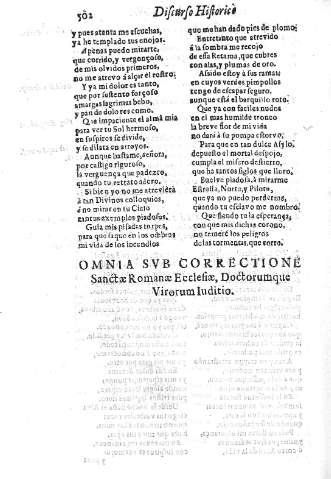 502
Discurso Historico
y pues atenta me escuchas,
ya he templado tus enojos.
Apenas puedo mirarte,
que corrido, y vergonçoso,
de mis olvidos primeros,
no me atrevo á alçar el rostro;
Y ya mi dolor es tanto,
que por sustento forçoso
amargas lagrimas bebo,
y pan de dolores como.
Que impaciente el alma mia
para ver tu Sol hermoso,
en suspiros se divide,
y se dilata en arroyos.
Aunque bastame, señora,
por castigo riguroso,
la verguença que padezco,
quando tu retrato adoro.
Si bien yo no me atreviera
à tan Divinos colloquios,
à no mirar en tu Cielo
tantos exemplos piadosos.
Guia mis pisadas torpes,
para que saque en los ombros
mi vida de los incendios
que me han dado pies de plomo;
Entretanto que atrevido
á la sombra me recojo
de essa Retama, que cubres
con alas, y plumas de oro.
Asido estoy á sus ramas
en cuyos verdes pimpollos
tengo de escapar seguro,
aunque está el barquillo roto.
Que ya con faciles nudos
en el mas humilde tronco
la breve flor de mi vida
no dará à la pompa estorvo;
Para que en tan dulce Asylo
depuesto el mortal despojo,
cumpla el misero destierro,
que ha tantos siglos que lloro.
Buelve piadosa à mirarme
Estrella, Norte, y Piloto,
que ya no puedo perderme,
quando tu esclavo me nombro.
Que siendo tu la esperança,
con que mis dichas corono,
no temeré los peligros
de las tormentas, que corro.
OMNIA SVB CORRECTIONE
Sanctæ Romanæ Ecclesiæ, Doctorumque
Virorum Iuditio.